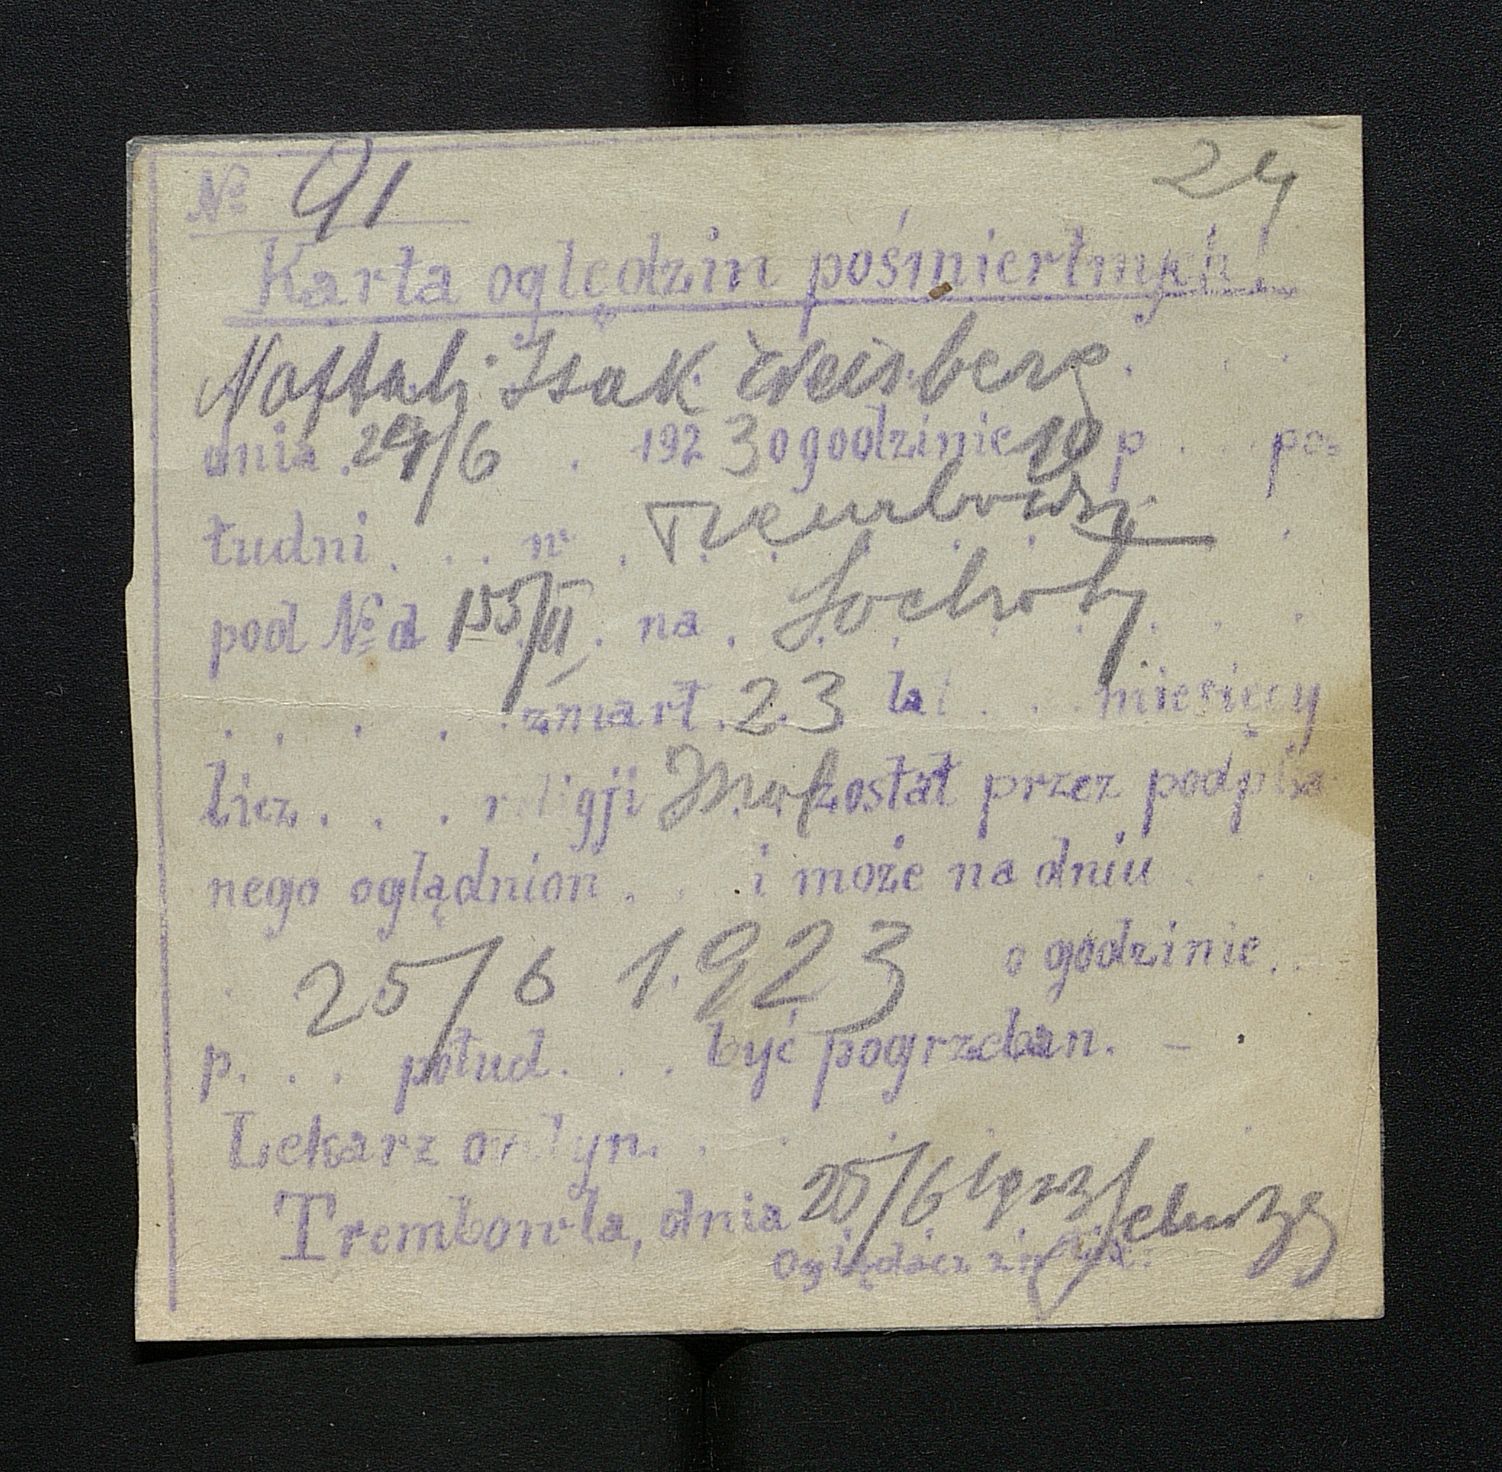 № 91
24
Karta oględzin pośmiertnych
Naftali Isak Weisberg
dnia 24/6 1923 o godzinie 10 p . . . po=
łudni . . . w . Trembowli
pod №d 155/II . na . Suchoty
. . . . . zmarł . 23 lat . . . miesięcy
licz . . . religji został przez podpisa
nego oglądnion . . . i może na dniu . . .
. 25/6 1923 o godzinie . .
p. . . połud. . . być pogrzeban. –
Lekarz ordyn. .
Trembowla, dnia 25/6 1923
Oglądacz